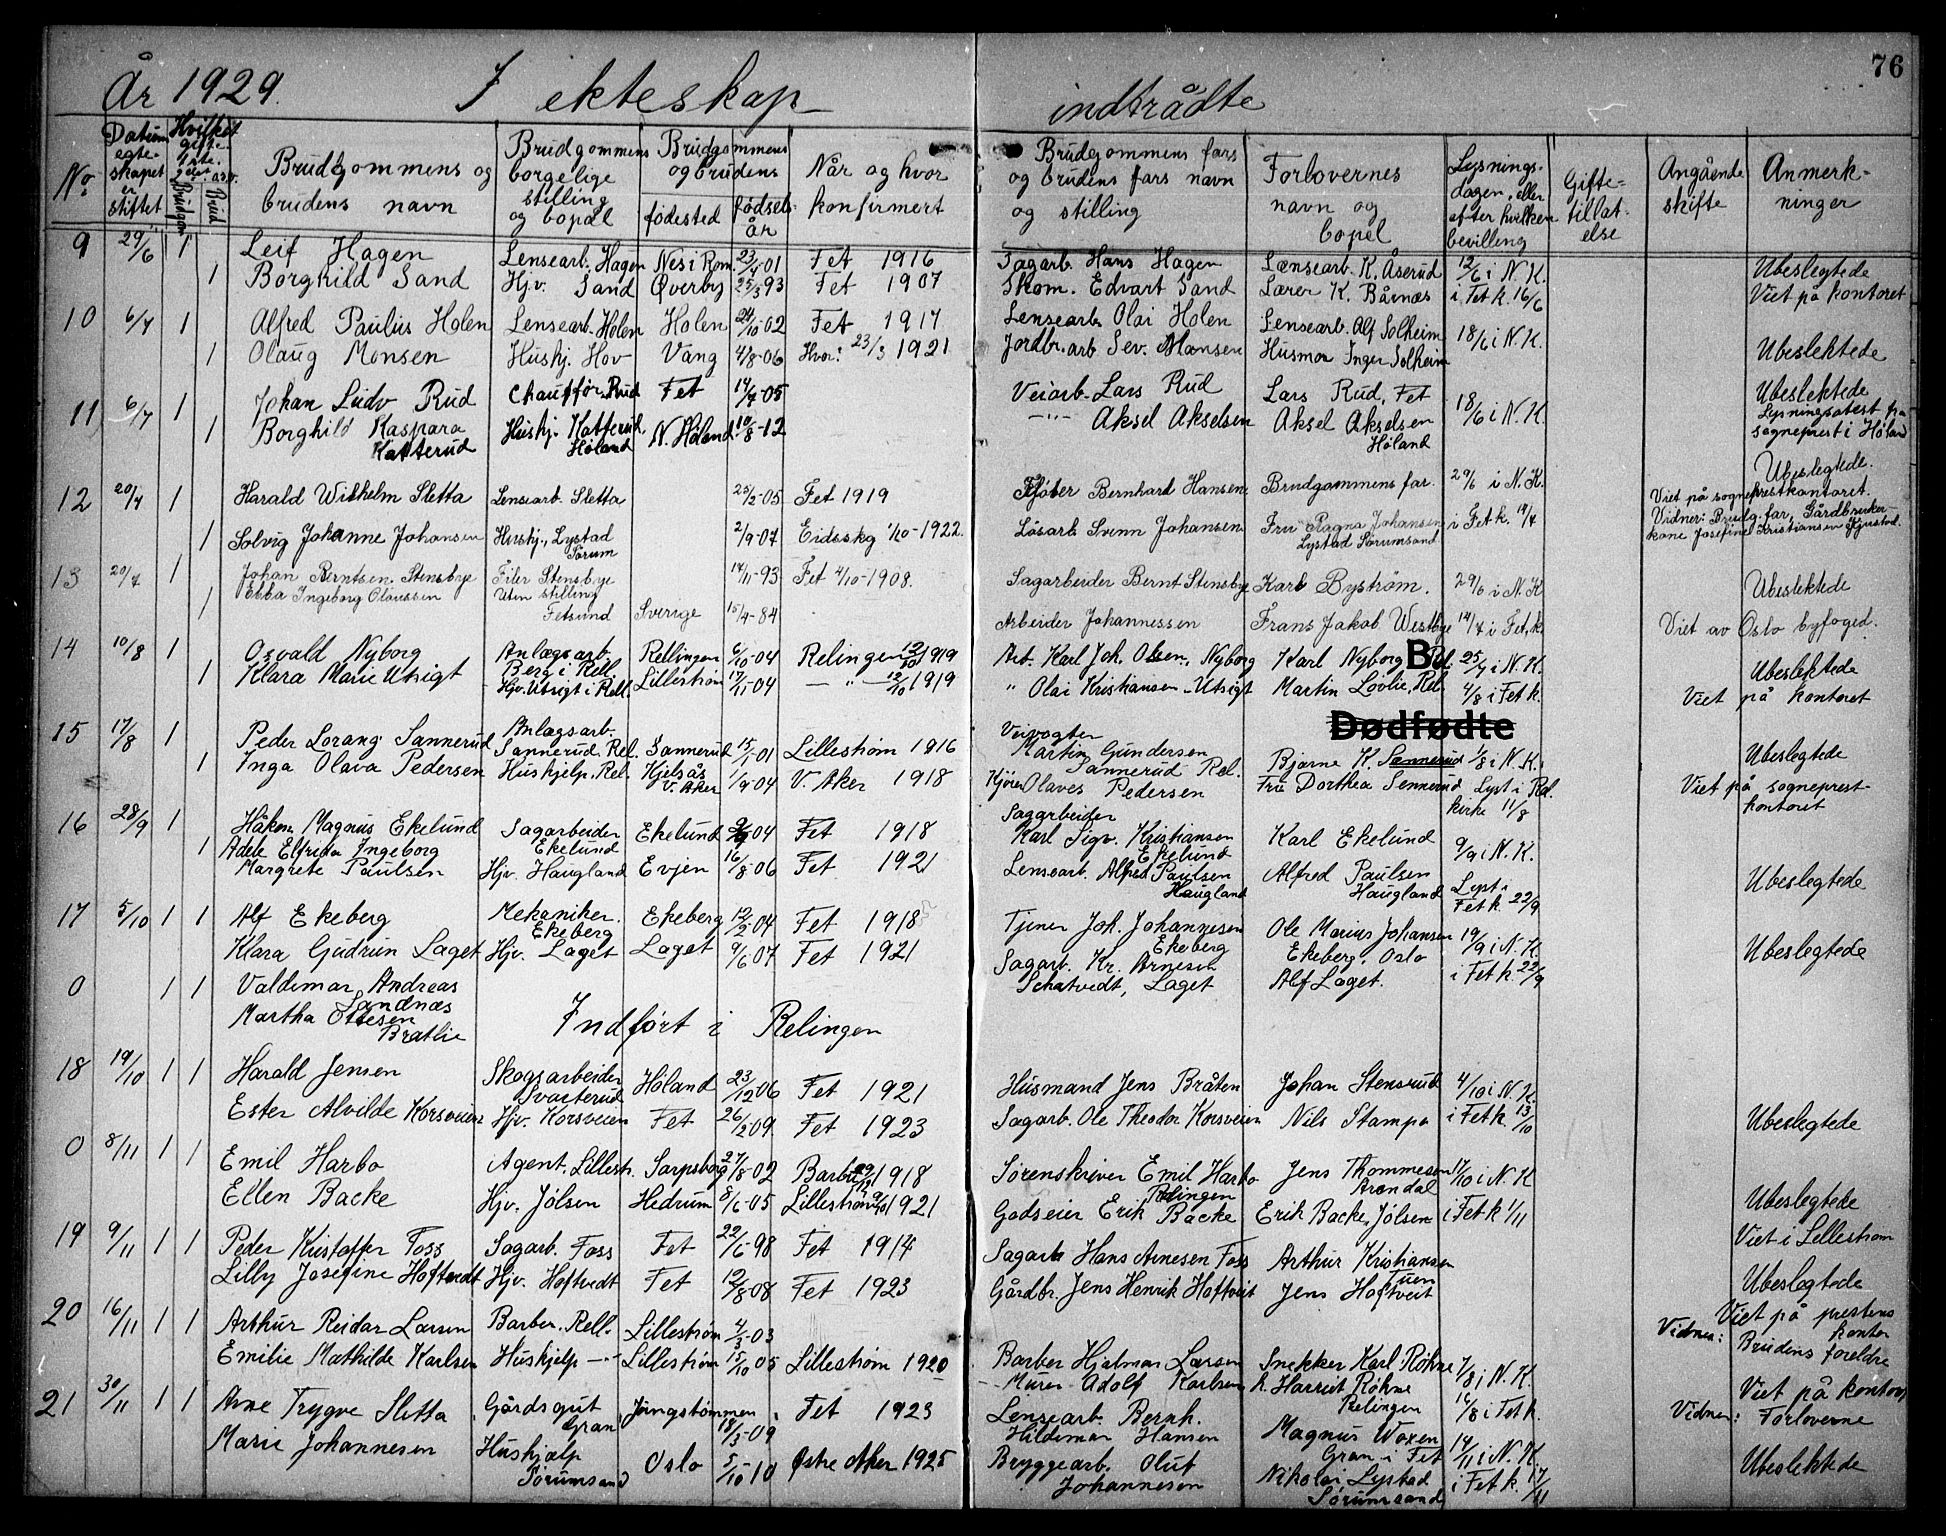 76
År 1929. I ekteskap indtrådte
No. Datum egteskapet er stiftet Hvilket gifte. 1ste. 2det osv. Brudgom Brud Brudgommens og brudens navn Brudgommens borgelige stilling og bopæl Brudgommens og brudens fødested fødselsår Når og hvor konfirmert Brudgommens fars og brudens fars navn og stilling Forlovernes navn og bopel Lysningsdagen, eller efter hvilken bevilling Giftetillatelse Angående skifte Anmerkninger
9 29/6 1 Leif Hagen Lensearb. Hagen Nes i Rom. 23/4-01 Fet 1916 Sagarb. Hans Hagen Lænsearb. K. Åserud 12/6 i N.K. Ubeslegtede
1 Borghild Sand Hjv. Sand Øverby 25/3 93 Fet 1907 Skom. Edvart Sand Lærer K. Bårnæs i Fet k. 16/6 Viet på kontoret
10 6/7 1 Alfred Paulius Holen Lensearb. Holen Holen 24/10-02 Fet 1917 Lensearb. Olai Holen Lensearb. Alf Solheim 18/6 i N.K.
1 Olaug Monsen Hushj. Hov Vang 4/8-06 Hvor: 23/3 1921 Jordbr.arb Sev. Monsen Husmor Inger Solheim Ubeslektede
11 6/7 1 Johan Ludv Rud Chauffør. Rud Fet 14/7-05 Veiarb. Lars Rud Lars Rud, Fet 18/6 i N.K. Ubeslektede
1 Borghild Kaspara Hushj. Katterud, N. Høland 10/8-12 -"- Aksel Akselsen Aksel Akselsen Lysningsatest fra
Katterud Høland Høland sogneprest i Høland
12 20/7 1 Harald Wilhelm Sletta Lensearb. Sletta 25/2-05 Fet 1919 Fjøter Bernhard Hansen Brudgommens far. 29/6 i N.K. Ubeslegtede.
Viet på sogneprestkontoret.
1 Solvig Johanne Johansen Hushj., Lystad 2/9-07 Eidsskg 1/10-1922. Løsarb Svenn Johansen Fru Ragna Johansen i Fet k. 14/7 Vidner: Brudg. far, Gårdbruker-
Sørum Lystad Sørumsand kone Josefine Kristiansen Hjustad.
13 20/7 1 Johan Berntsen Stensbye Filer Stensbye 14/11-93 Fet 4/10-1908. Sagarbeider Bernt Stensbye Karl Byström. 29/6 i N.K Ubeslektede
1 Ebba Ingeborg Olaussen Uten stilling
Fetsund Sverige 15/4-84 Arbeider Johannessen Frans Jakob Westbye 14/7 i Fet. k. Viet av Oslo byfoged.
14 10/8 1 Osvald Nyborg Anlægsarb. Rellingen 6/10-04 Relingen 12/10 1919 Arb. Karl Joh. Olsen, Nyborg Karl Nyborg B Rel. 25/7 i N.K. Ubeslektede
Berg i Rell.
1 Klara Marie Utsigt Hjv. Utsigt i Rell. Lillestrøm 17/11-04 — " — 12/10 1919 " Olai Kristiansen Utsigt Martin Løvlie, Rel 4/8 i Fet k. Viet på kontoret
Dødfødte
15 17/8 1 Peder Lorang Sannerud Anlægsarb. Sannerud Rel. Sannerud 15/1-01 Lillestrøm 1916 Veivogter Martin Gundersen Sannerud Rel. Bjarne K. Sannerud 1/8 i N.K. Ubeslegtede
1 Inga Olava Pedersen Hushjelp. Rel. Kjelsås V. Aker 1/9-04 V. Aker 1918 Kjører Olaves Pedersen Fru Dorthea Sennerud Lyst i Rel. kirke 11/8 Viet på sogneprestkontoret
16 28/9 1 Håkon Magnus Ekelund Sagarbeider Ekelund Ekelund 04 Fet 1918 Sagarbeider Karl Sigv. Kristiansen Ekelund Karl Ekelund 9/9 i N.K.
1 Adele Elfrida Ingeborg Margrete Paulsen Hjv. Haugland Evjen 16/8-06 Fet 1921 Lensearb. Alfred Paulsen Haugland Alfred Paulsen Haugland Lyst i Fet k. 22/9 Ubeslegtede
17 5/10 1 1 Alf Ekeberg Mekaniker. Ekeberg Ekeberg 12/2-04 Fet 1918 Tjener Joh. Johannesen Ekeberg Ole Marius Johansen Ekeberg, Oslo 19/9 i N.K. Ubeslegtede
Klara Gudrun Laget Hjv. Laget Laget 9/6 07 Fet 1921 Sagarb. Kr. Arnesen Schatvedt, Laget Alf Laget. i Fet k 22/9
0 1 1 Valdemar Andreas Sandnæs
Martha Ottesen Bratlie Indført i Relingen
18 19/10 1 1 Harald Jensen Skogsarbeider Svarterud Høland 23/12 06 Fet 1921 Husmand Jens Bråten Johan Stensrud 4/10 i N.K.
Ester Alvilde Korsveien Hjv. Korsveien Fet 26/2 09. Fet 1923 Sagarb. Ole Theodor Korsveien Nils Stampe i Fet k. 13/10 Ubeslegtede
0 8/11 1 1 Emil Harbo Agent. Lillestr. Sarpsborg 27/8-02 Barbu 1918 Sørenskriver Emil Harbo Relingen Jens Thommesen Arendal 17/10 i N.K
Ellen Backe Hjv. Jølsen Hedrum 8/6-05 Lillestrøm 1921 Godseier Erik Backe Erik Backe, Jølsen i Fet k 1/11 Ubeslegtede
Viet i Lillestrøm
19 9/11 1 1 Peder Kristoffer Foss Sagarb. Foss Fet 22/6-98 Fet 1914 Sagarb Hans Arnesen Foss Arthur Kristiansen Tuen
Lilly Josefine Hoftvedt Hjv. Hoftvedt Fet 12/8-08 Fet 1923 Gårdbr. Jens Henrik Hoftveit Jens Hoftveit Ubeslegtede
20 16/11 1 1 Arthur Reidar Larsen Barber. Rell. Lillestrøm 4/3-03 Viet på prestens kontor
Vidner: Brudens foreldre
Emilie Mathilde Karlsen Hushjelp -"- Lillestrøm 15/10 05 Lillestrøm 1920 Barber Hjalmar Larsen Snekker Karl Røhne 7/8 i N.K.
Murer Adolf Karlsen h. Harriet Røhne Relingen 16/8 i Fet k. Viet på kontoret
21 30/11 1 1 Arne Trygve Sletta Gårdsgut Gran Jøngstømmen 18/3-09 Fet 1923 Lensearb. Bernh. Hildemar Hansen Magnus Woxen Gran i Fet 14/11 i N.K. Vidner: Forloverne
Marie Johannesen Hushjælp Sørumsand Oslo 5/10-10 Østre Aker 1925 Bryggearb. Oluf Johannesen Nikolai Lystad Sørumsand i Fet k. 17/11 Ubeslektede